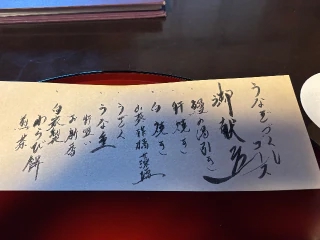 うなぎづくしコース
御献立
鰻の湯引き
肝焼き
白焼き
うざく
うな重
肝吸い
お新香
自家製
わらび餅
煎茶